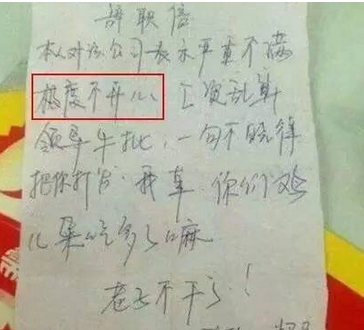 辞职信
本人对该公司表示严重不满
极度不开心，工资乱算
领导牛批，一句不晓得
把你打发，我草，你们鸡
儿果吃多了嘛
老子不干了！